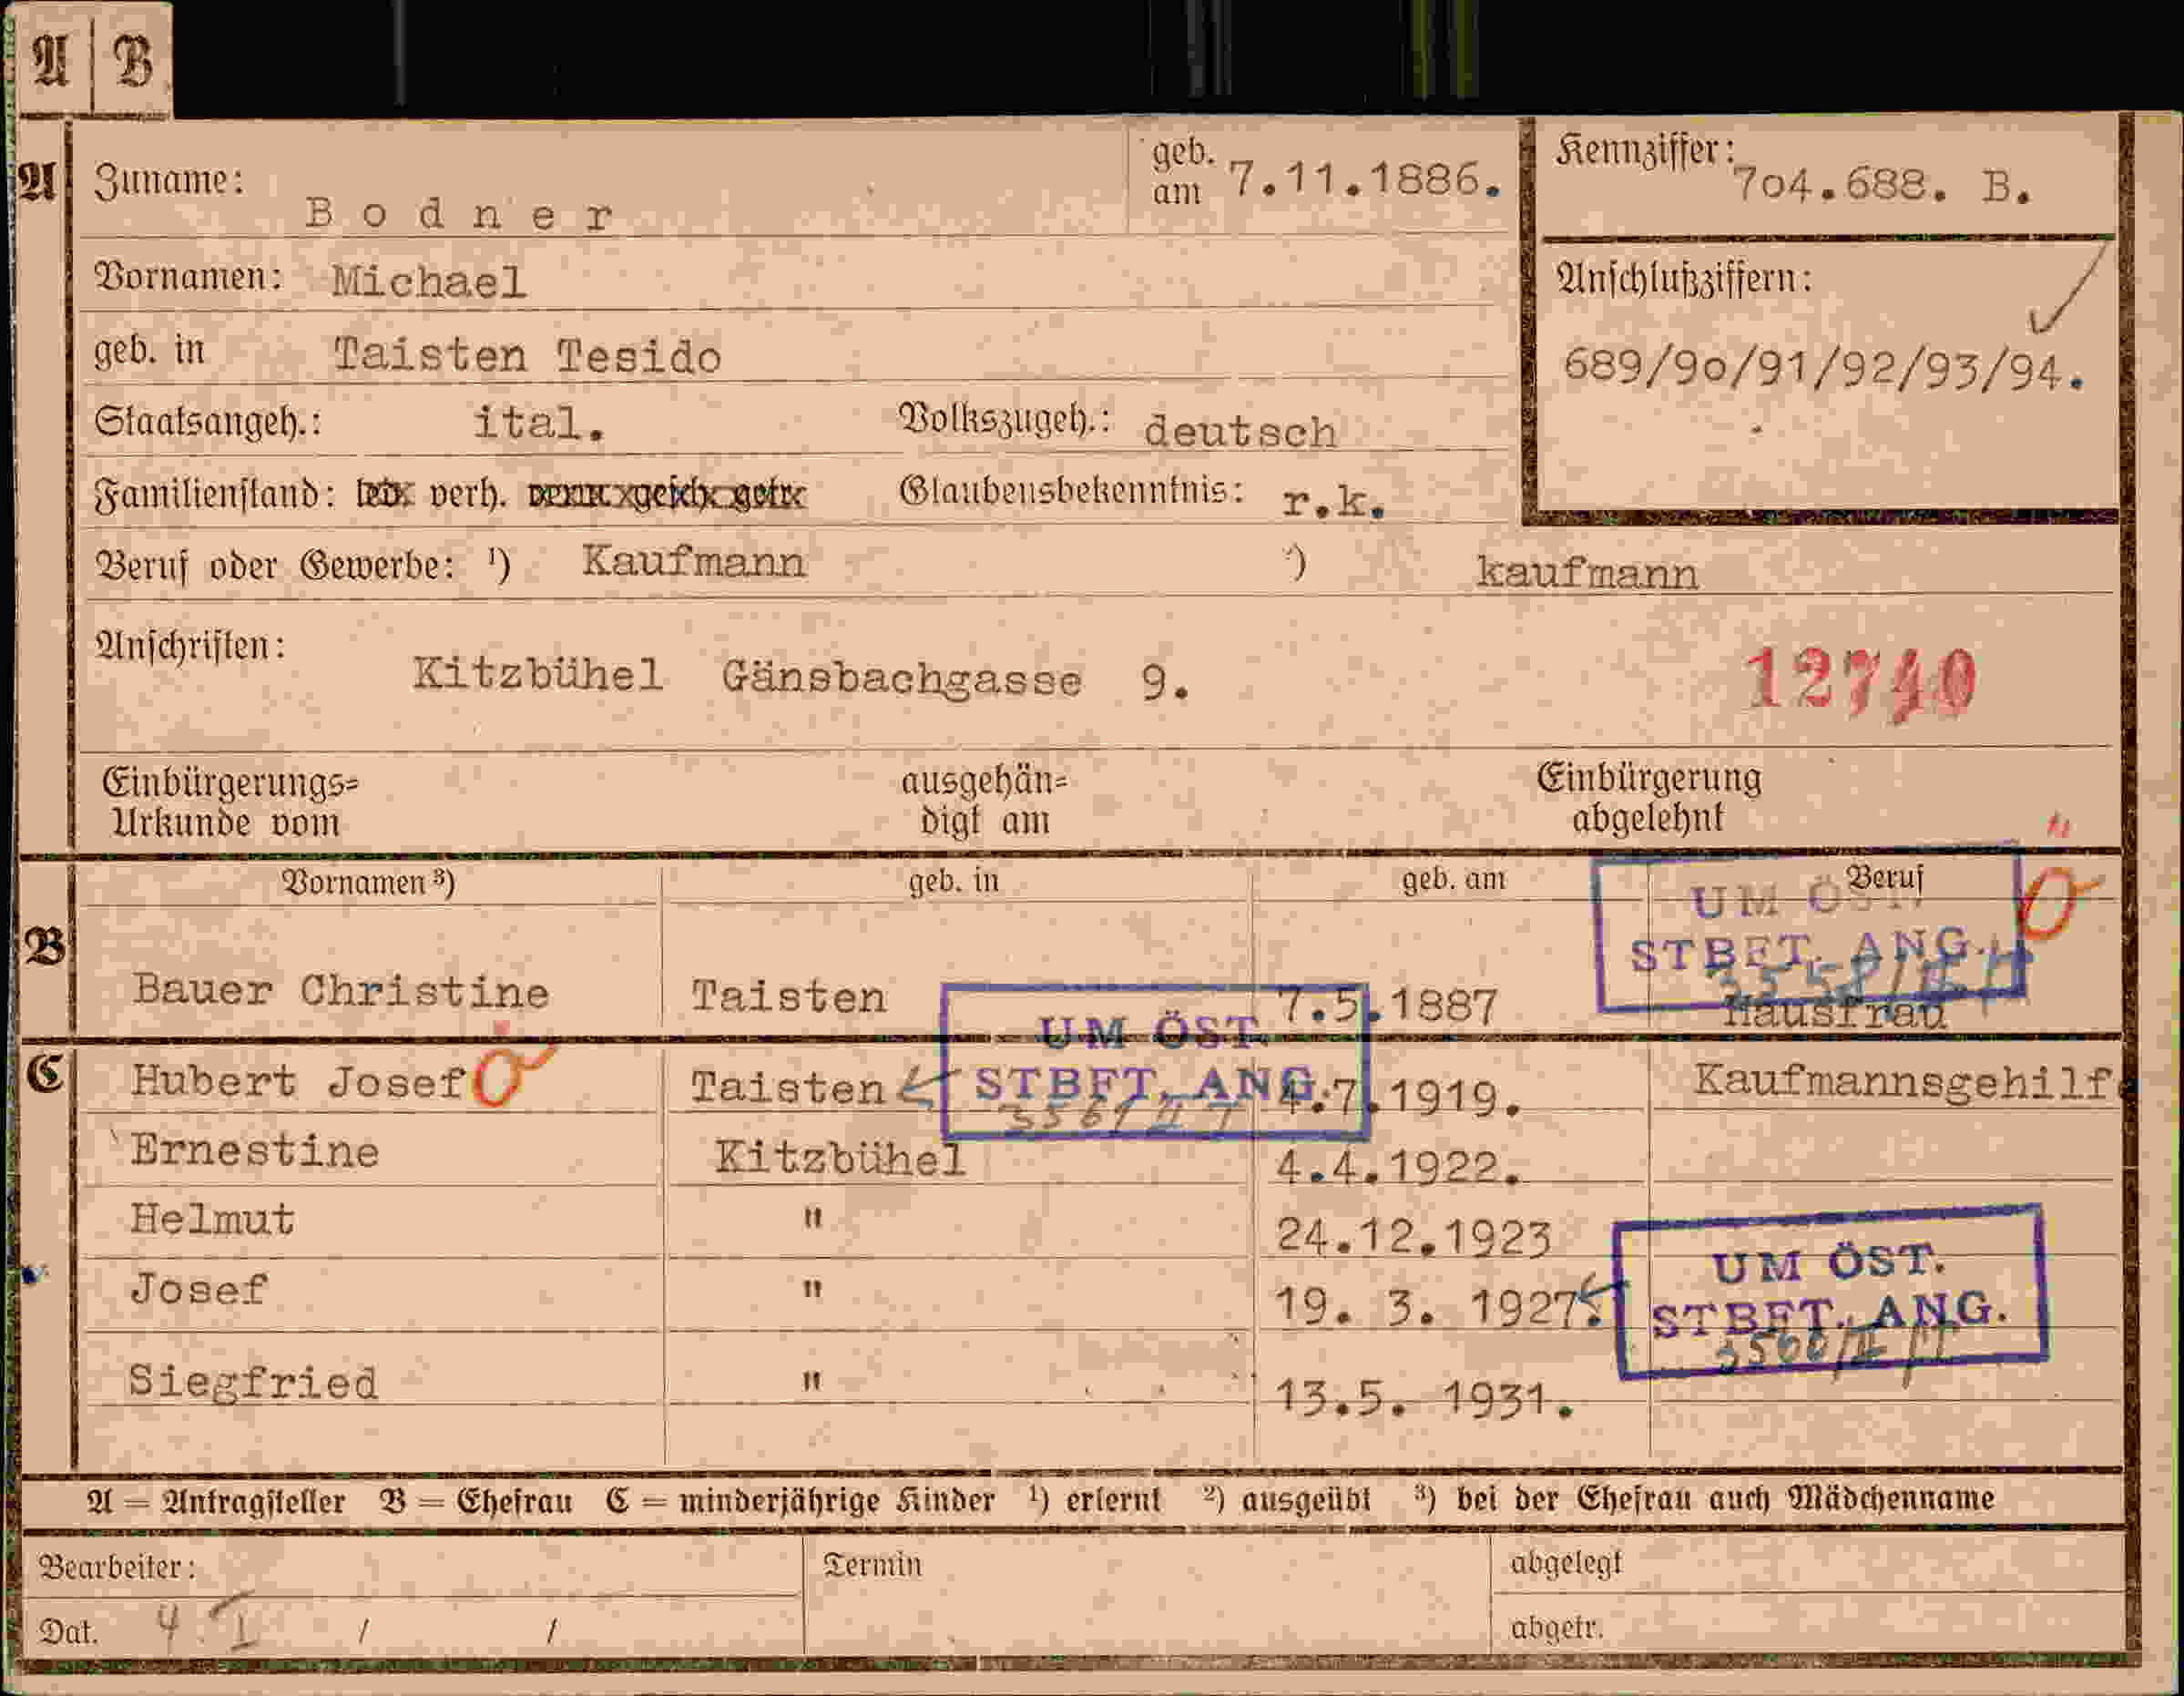 A B
A
Zuname: Bodner geb. am 7.11.1886.
Kennziffer: 704.688. B.
Vornamen: Michael
Anschlußziffern:
689/90/91/92/93/94.
geb. in Taisten Tesido
Staatsangeh.: ital. Volkszugeh.: deutsch
Familienstand: verh. Glaubensbekenntnis: r.k.
Beruf oder Gewerbe: ¹) Kaufmann ²) kaufmann
Anschriften: Kitzbühel Gänsbachgasse 9.
12740
Einbürgerungs=
Urkunde vom
ausgehän=
digt am
Einbürgerung
abgelehnt
B
Vornamen ³) geb. in geb. am Beruf
UM ÖST.
STBFT. ANG.
Bauer Christine Taisten 7.5.1887 Hausfrau
UM ÖST.
STBFT. ANG.
C
Hubert Josef Taisten 4.7.1919. Kaufmannsgehilfe
Ernestine Kitzbühel 4.4.1922.
Helmut " 24.12.1923
Josef " 19. 3. 1927.
UM ÖST.
STBFT. ANG.
Siegfried " 13.5. 1931.
A = Antragsteller B = Ehefrau C = minderjährige Kinder ¹) erlernt ²) ausgeübt ³) bei der Ehefrau auch Mädchenname
Bearbeiter: Termin abgelegt
Dat. 4. I / / abgetr.